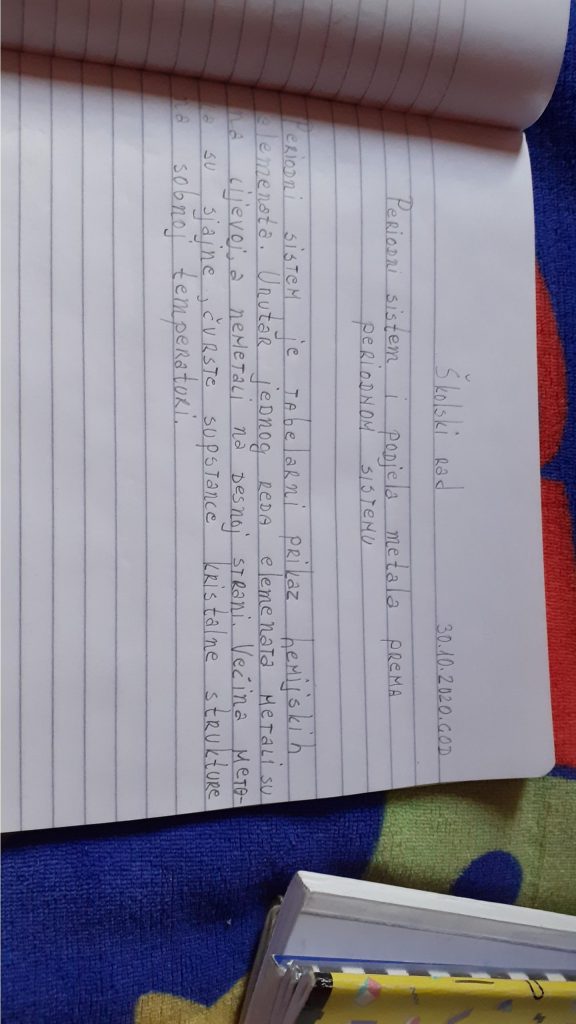 Školski rad 30.10.2020.GOD
Periodni sistem i podjela metala prema
periodnom sistemu
Periodni sistem je tabelarni prikaz hemijskih
elemenata. Unutar jednog reda elemenata metali su
na lijevoj, a nemetali na desnoj strani. Većina meta-
la su sjajne, čvrste supstance kristalne strukture
na sobnoj temperaturi.